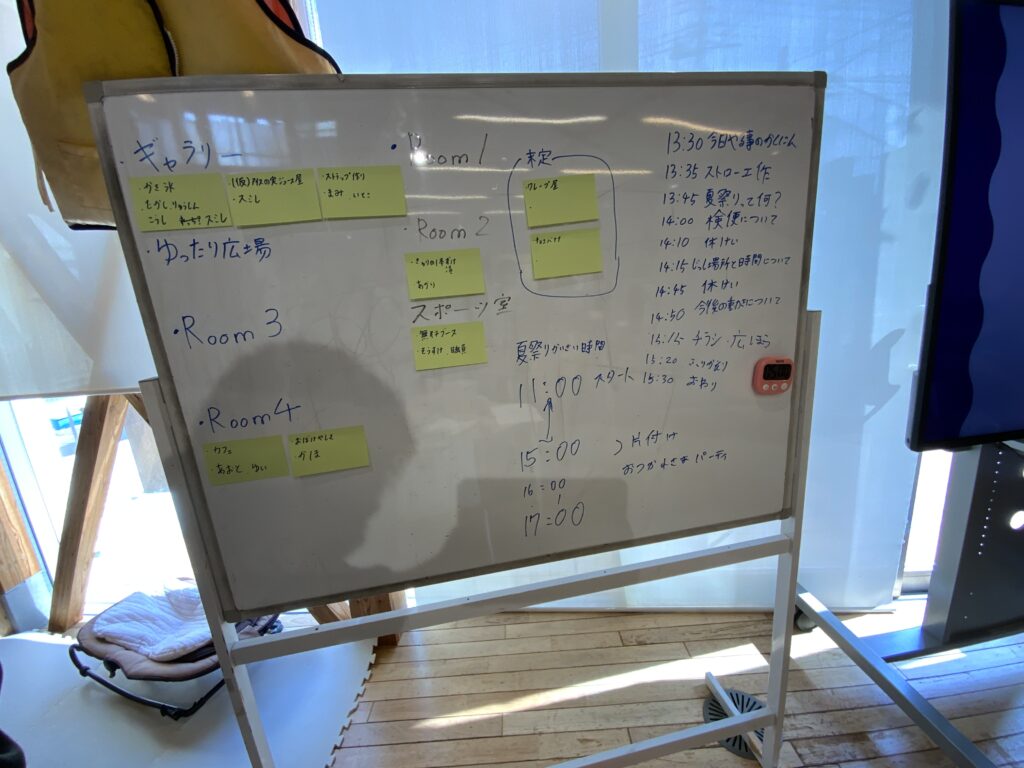 ・ギャラリー
・かき氷
こうし
スミレ
(仮)アイスの実ジュース屋
・スミレ
・ストラップ作り
・まみ
・ゆったり広場
・Room 3
・Room 4
・カフェ
・あおと ゆい
おばけやしき
かほ
・Room 1
・Room 2
・きゅうり1本漬け
あかり
スポーツ室
・そうすけ 職員
未定
クレープ屋
チョコバナナ
夏祭りかいさい時間
11:00 スタート
15:00
16:00
17:00
片付け
おつかれさまパーティ
13:30 今日やる事のかくにん
13:35 ストロー工作
13:45 夏祭りって何?
14:00 検便について
14:10 休けい
14:15 じっし場所と時間について
14:45 休けい
14:50 今後の動きについて
15:15 チラシ・広ほう
15:20 ふりかえり
15:30 おわり